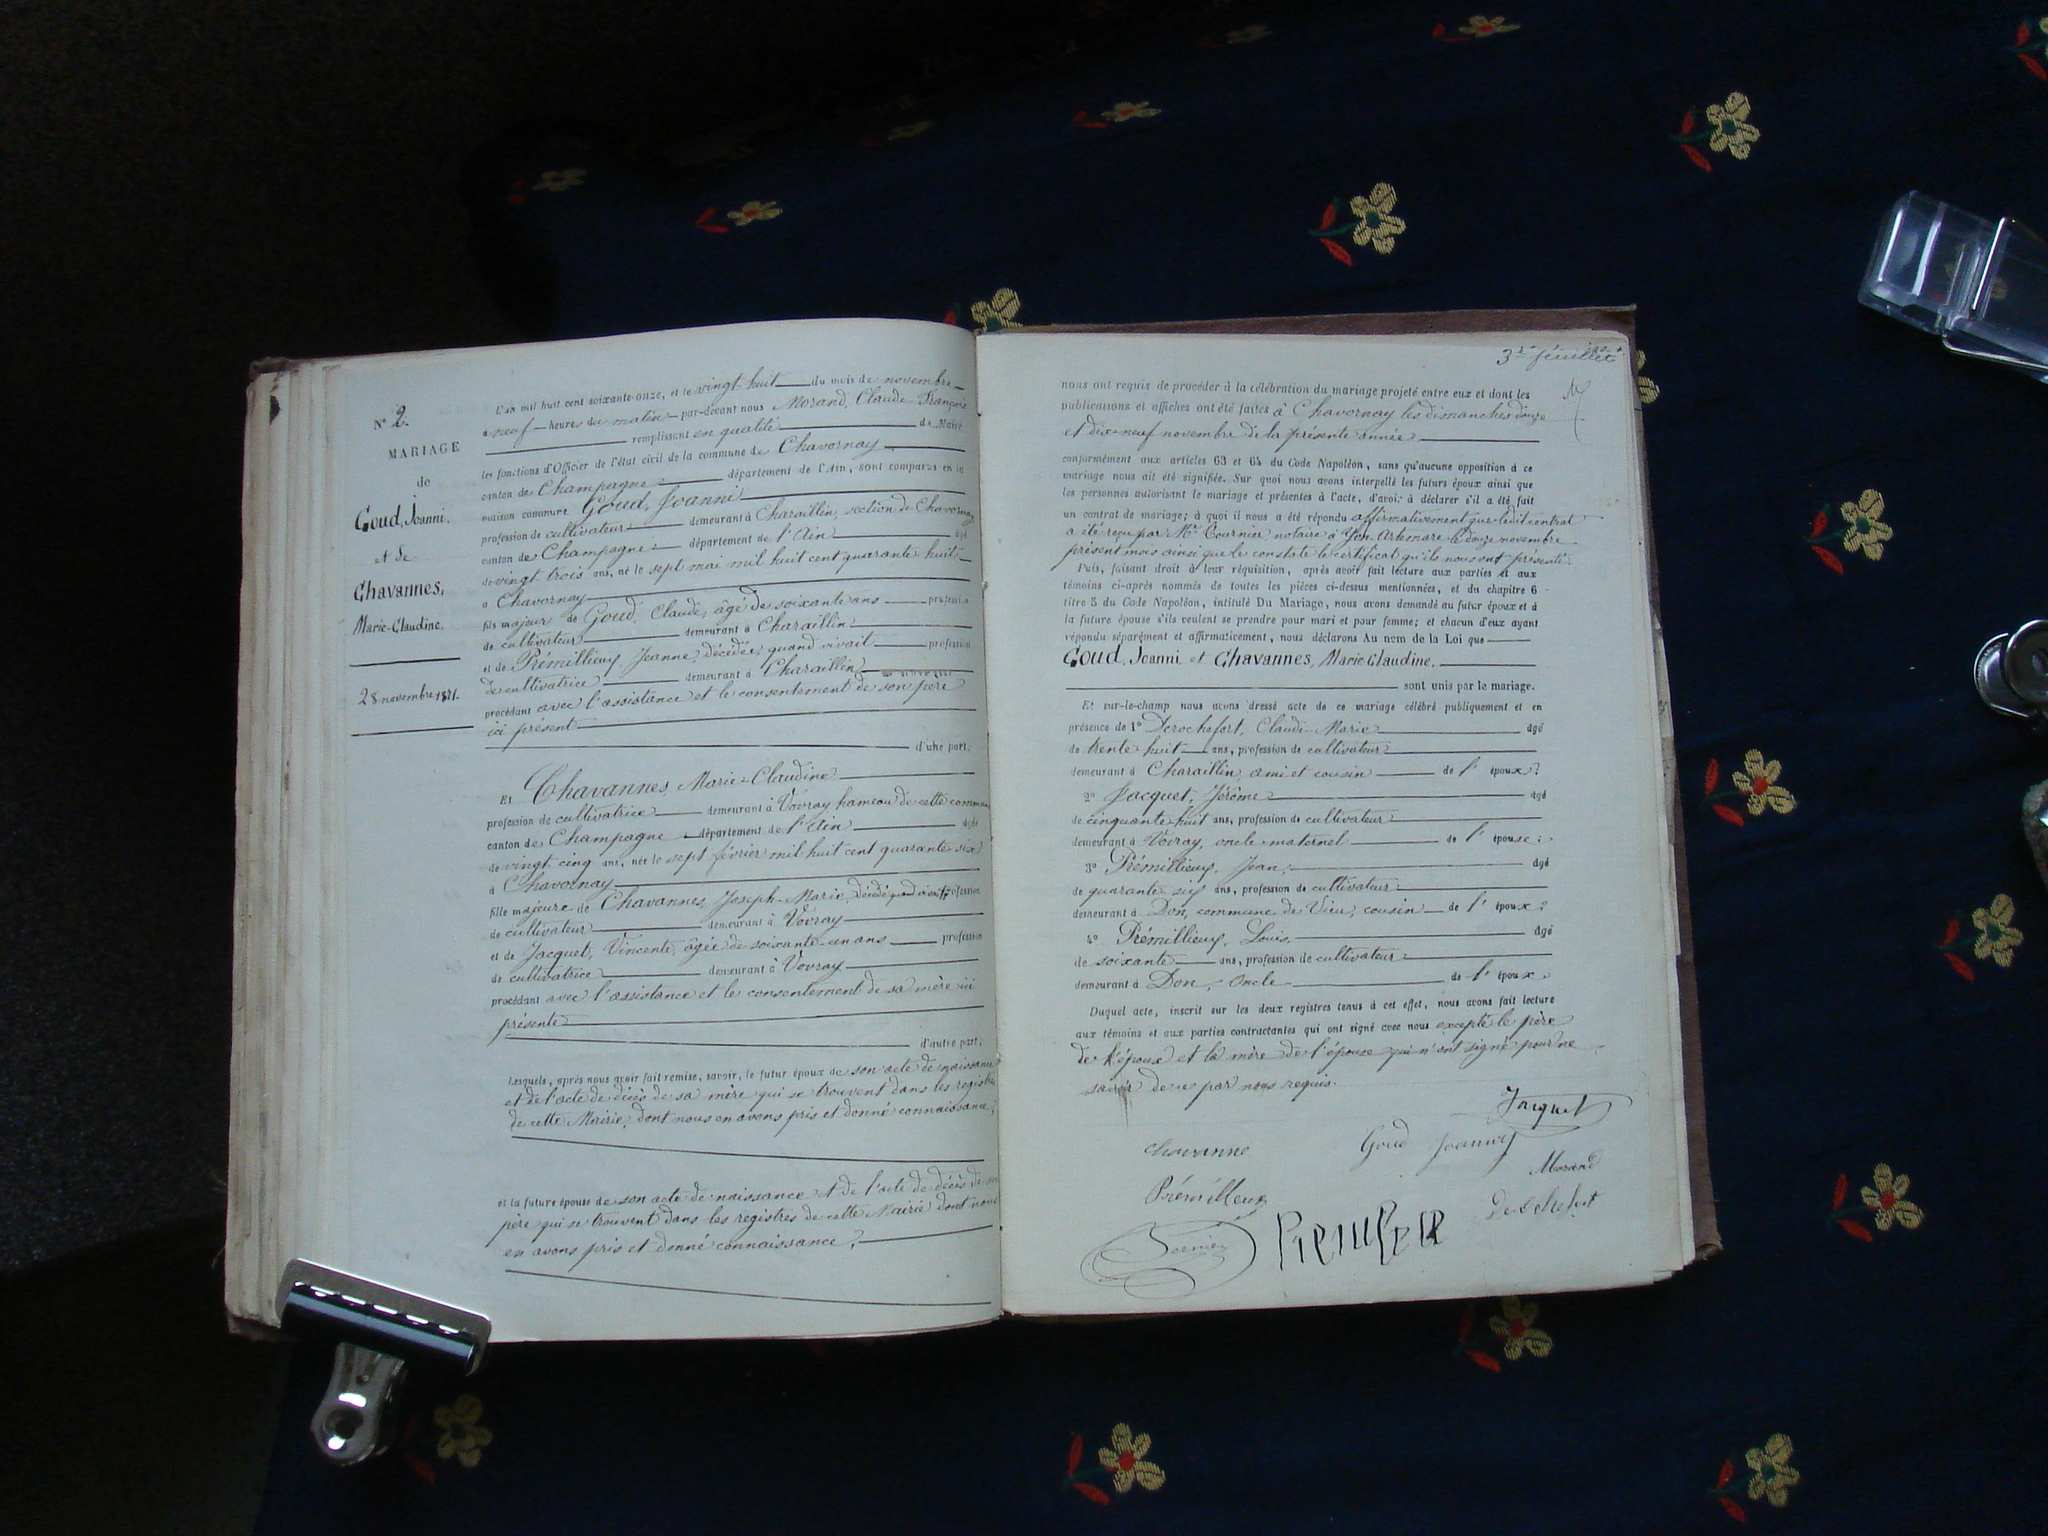 N° 2.
MARIAGE
de
Goud, Joanni.
et de
Chavannes,
Marie-Claudine.
28 novembre 1871.
L'an mil huit cent soixante-onze, et le vingt huit du mois de novembre
à neuf heures du matin par-devant nous Morand, Claude François
remplissant en qualité de Maire
les fonctions d'Officier de l'état civil de la commune de Chavornay
canton de Champagne département de l'Ain, sont comparus en la
maison commune Goud, Joanni
profession de cultivateur demeurant à Charaillin, section de Chavornay
canton de Champagne département de l'Ain âgé
de vingt trois ans, né le sept mai mil huit cent quarante huit
à Chavornay
fils majeur de Goud, Claude, âgé de soixante ans profession
de cultivateur demeurant à Charaillin
et de Prémillieux, Jeanne, décédée, quand vivait profession
de cultivatrice demeurant à Charaillin
procédant avec l'assistance et le consentement de son père
ici présent
d'une part.
Et Chavannes, Marie-Claudine
profession de cultivatrice demeurant à Vovray hameau de cette commune
canton de Champagne département de l'Ain âgée
de vingt cinq ans, née le sept février mil huit cent quarante six
à Chavornay
fille majeure de Chavannes, Joseph-Marie, décédé quand vivait profession
de cultivateur demeurant à Vovray
et de Jacquet, Vincente, âgée de soixante-un ans profession
de cultivatrice demeurant à Vovray
procédant avec l'assistance et le consentement de sa mère ici
présente
d'autre part.
Lesquels, après nous avoir fait remise, savoir, le futur époux de son acte de naissance
et de l'acte de décès de sa mère qui se trouvent dans les registres
de cette Mairie, dont nous en avons pris et donné connaissance,
et la future épouse de son acte de naissance et de l'acte de décès de son
père qui se trouvent dans les registres de cette Mairie dont nous
en avons pris et donné connaissance,
3e feuillet
nous ont requis de procéder à la célébration du mariage projeté entre eux et dont les
publications et affiches ont été faites à Chavornay les dimanches douze
et dix-neuf novembre de la présente année
conformément aux articles 63 et 64 du Code Napoléon, sans qu'aucune opposition à ce
mariage nous ait été signifiée. Sur quoi nous avons interpellé les futurs époux ainsi que
les personnes autorisant le mariage et présentes à l'acte, d'avoir à déclarer s'il a été fait
un contrat de mariage; à quoi il nous a été répondu affirmativement que ledit contrat
a été reçu par Me Tournier notaire à Yon Artemare le douze novembre
présent mois ainsi que le constate le certificat qu'ils nous ont présenté.
Puis, faisant droit à leur réquisition, après avoir fait lecture aux parties et aux
témoins ci-après nommés de toutes les pièces ci-dessus mentionnées, et du chapitre 6
titre 5 du Code Napoléon, intitulé Du Mariage, nous avons demandé au futur époux et à
la future épouse s'ils veulent se prendre pour mari et pour femme; et chacun d'eux ayant
répondu séparément et affirmativement, nous déclarons Au nom de la Loi que
Goud, Joanni et Chavannes, Marie-Claudine.
sont unis par le mariage.
Et sur-le-champ nous avons dressé acte de ce mariage célébré publiquement et en
présence de 1° Derochefort, Claude-Marie âgé
de trente-huit ans, profession de cultivateur
demeurant à Charaillin, ami et cousin de l'époux;
2° Jacquet, Jérôme âgé
de cinquante huit ans, profession de cultivateur
demeurant à Vovray, oncle maternel de l'épouse;
3° Prémillieux, Jean, âgé
de quarante six ans, profession de cultivateur
demeurant à Don, commune de Vieu, cousin de l'époux;
4° Prémillieux, Louis âgé
de soixante ans, profession de cultivateur
demeurant à Don, oncle de l'époux.
Duquel acte, inscrit sur les deux registres tenus à cet effet, nous avons fait lecture
aux témoins et aux parties contractantes qui ont signé avec nous excepté le père
de l'époux et la mère de l'épouse qui n'ont signé pour ne
savoir de ce par nous requis.
Jacquet
chavanne Goud Joanny
Morand
Prémillieux
Derochefort